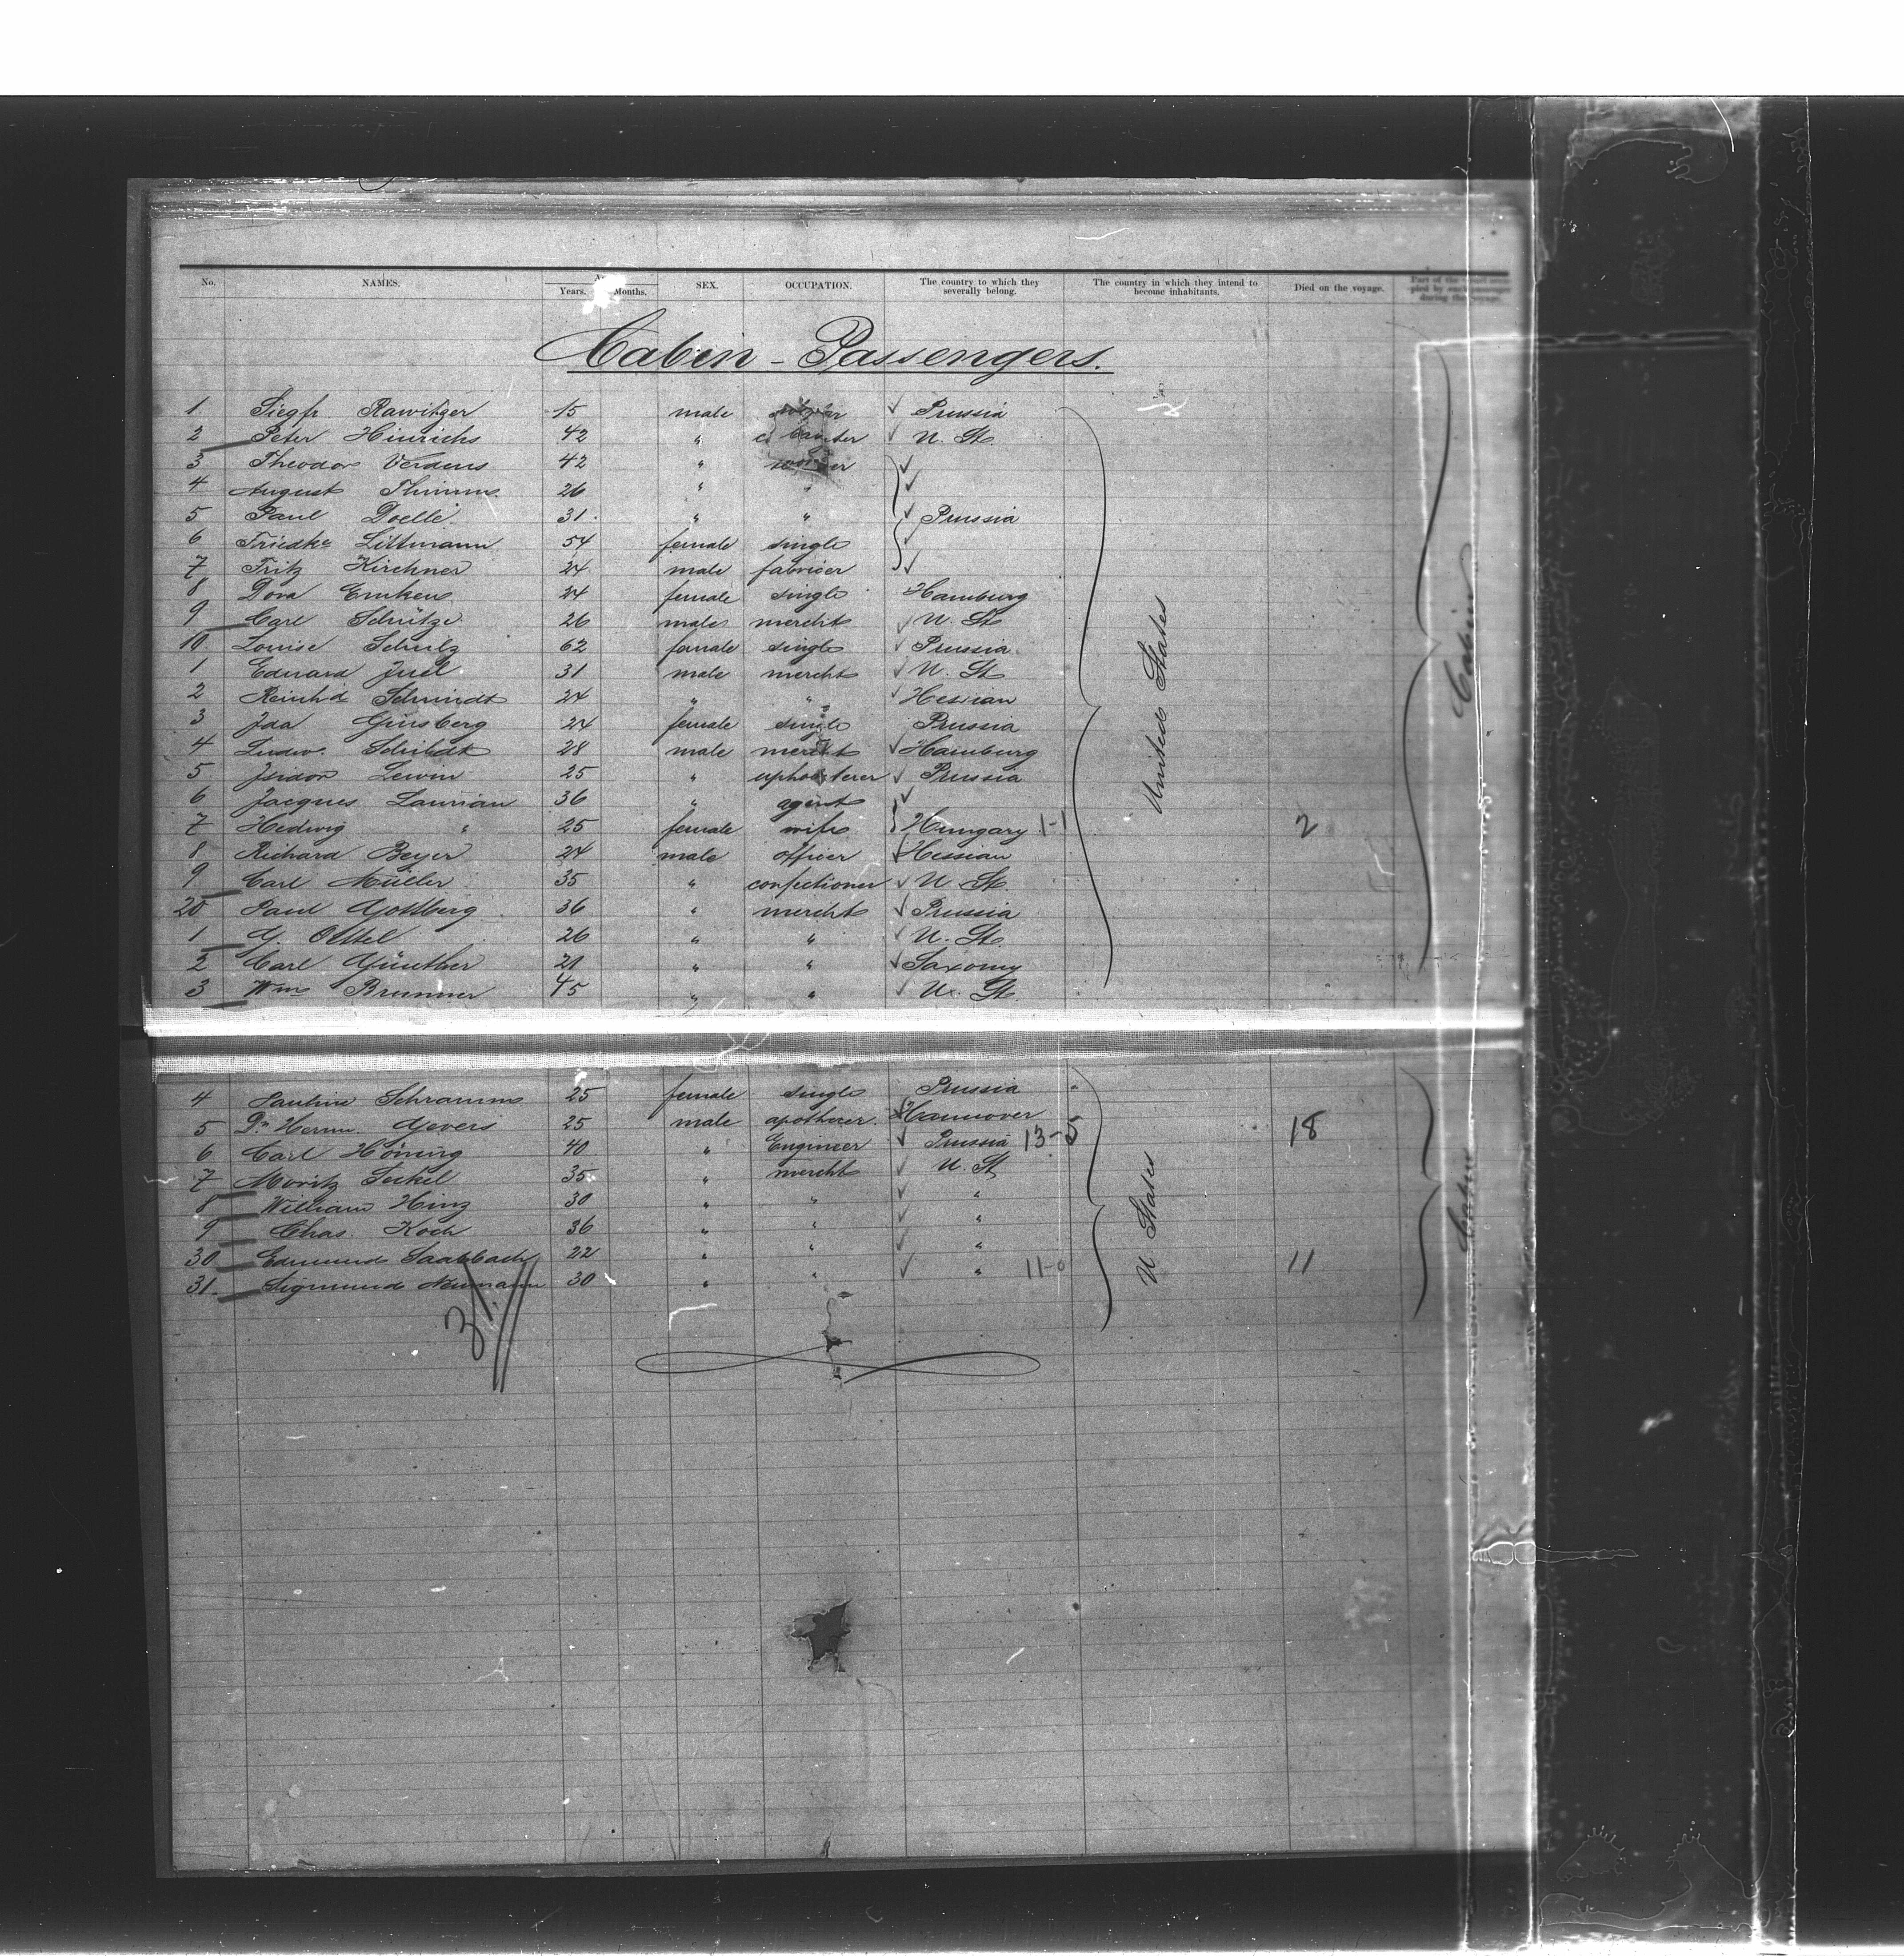 No. NAMES. Years. Months. SEX. OCCUPATION. The country to which they severally belong. The country in which they intend to become inhabitants. Died on the voyage. Part of the vessel occupied by each passenger during the voyage.
Cabin - Passengers.
1 Siegfr. Rawitzer 15 male Prussia
2 Peter Hinrichs 42 " U. St.
3 Theodor 42 "
4 August Thimm 26 " "
5 Paul Doelle 31 " " Prussia
6 Friedke Littmann 54 female single
7 Fritz Kirchner 24 male fabricer
8 Dora 24 female single Hamburg
9 Carl Schütze 26 male mercht U. St.
10 Louise Schulz 62 female single Prussia
1 Eduard Juel 31 male mercht U. St.
2 Reinh'd Schmidt 24 " " Hessian
3 Ida Ginsberg 24 female single Prussia
4 Ludw. 28 male mercht Hamburg
5 Isidor Lewin 25 " upholsterer Prussia
6 Jacques Laurian 36 " agent
7 Hedwig " 25 female wife Hungary 1-1 2
8 Richard Beyer 24 male officer Hessian
9 Carl Müller 35 " confectioner U. St.
20 Paul Gottberg 36 " mercht Prussia
1 26 " " U. St.
2 Carl Günther 21 " " Saxony
3 Wm Brunner 45 " " U. St.
United States
Cabin
4 Pauline Schramm 25 female single Prussia
5 Dr. Herm. Gevers 25 male apothecer. Hannover
6 Carl Höning 40 " Engineer Prussia 13-5 18
7 Moritz 35 " mercht U. St.
8 William Hinz 30 " " "
9 Chas. Koch 36 " " "
30 Edmund Saalbach 22 " " "
31 Sigmund Neumann 30 " " " 11-0 11
U States
Cabin
31